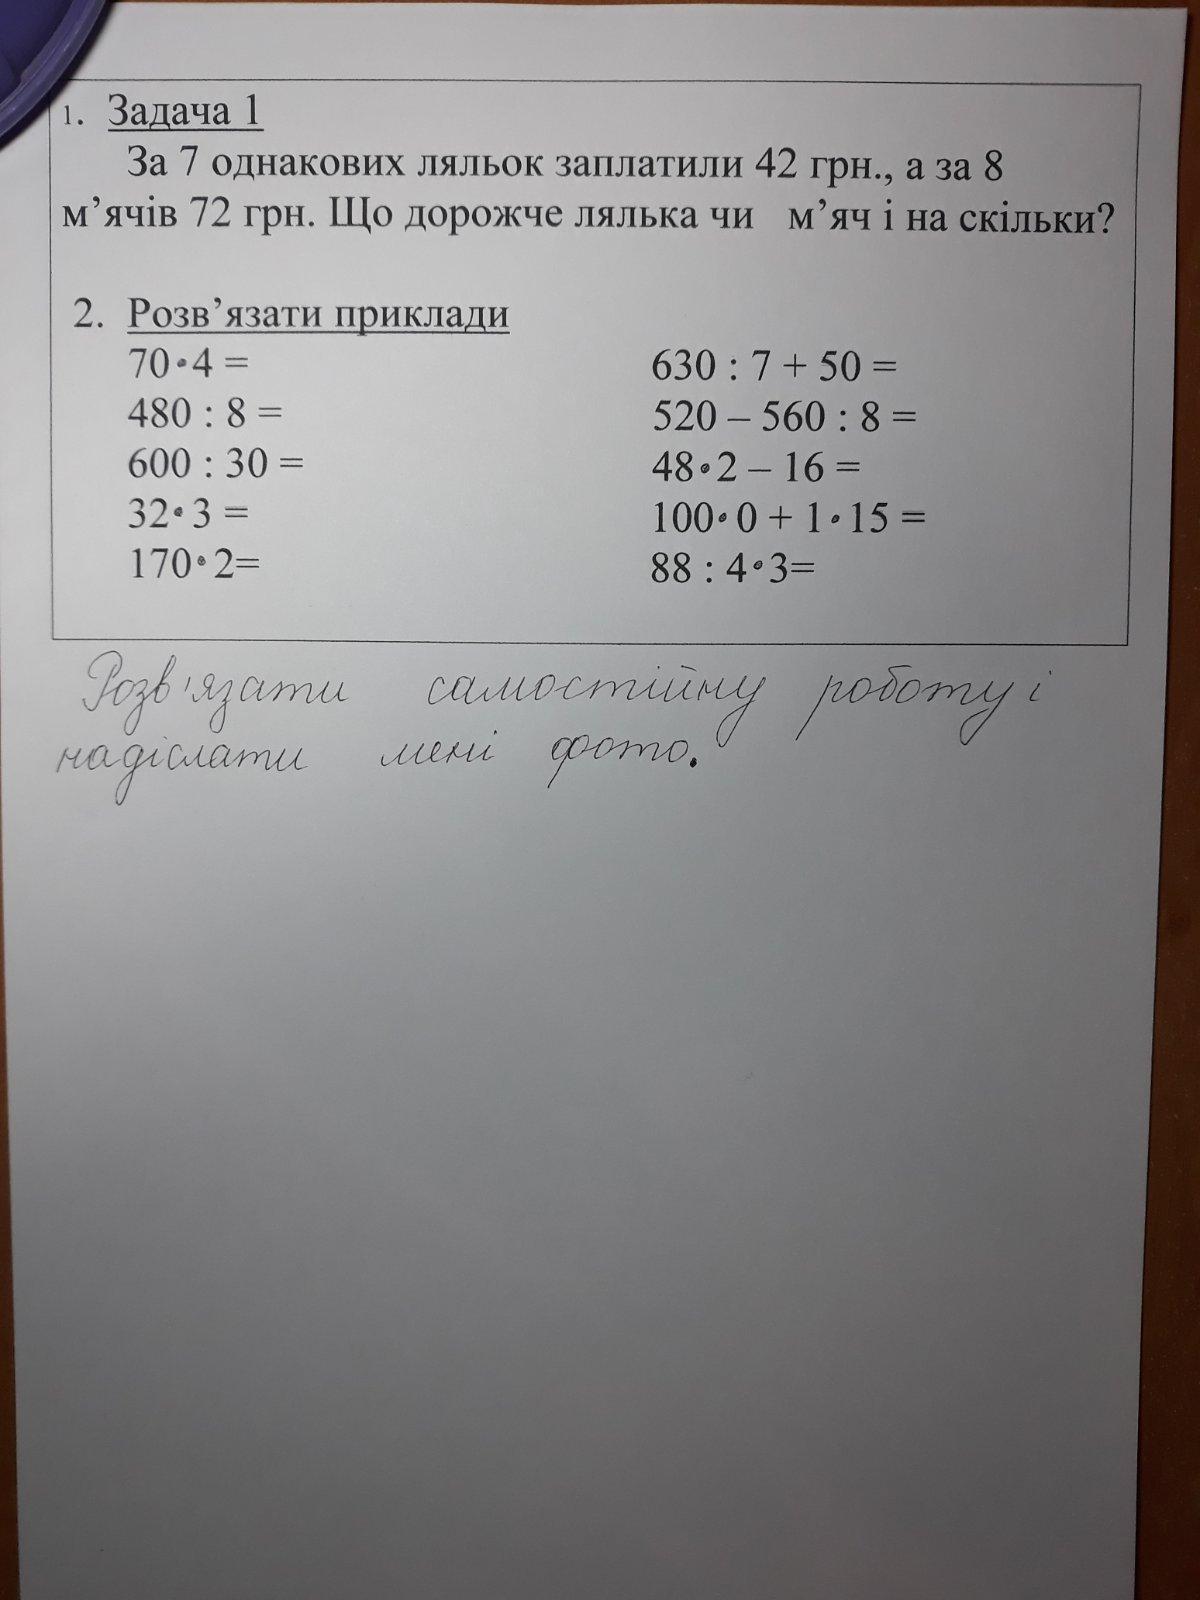 1. Задача 1
За 7 однакових ляльок заплатили 42 грн., а за 8
м’ячів 72 грн. Що дорожче лялька чи м’яч і на скільки?
2. Розв’язати приклади
70•4 =
480 : 8 =
600 : 30 =
32•3 =
170•2=
630 : 7 + 50 =
520 – 560 : 8 =
48•2 – 16 =
100•0 + 1•15 =
88 : 4•3=
Розв'язати самостійну роботу і
надіслати мені фото.